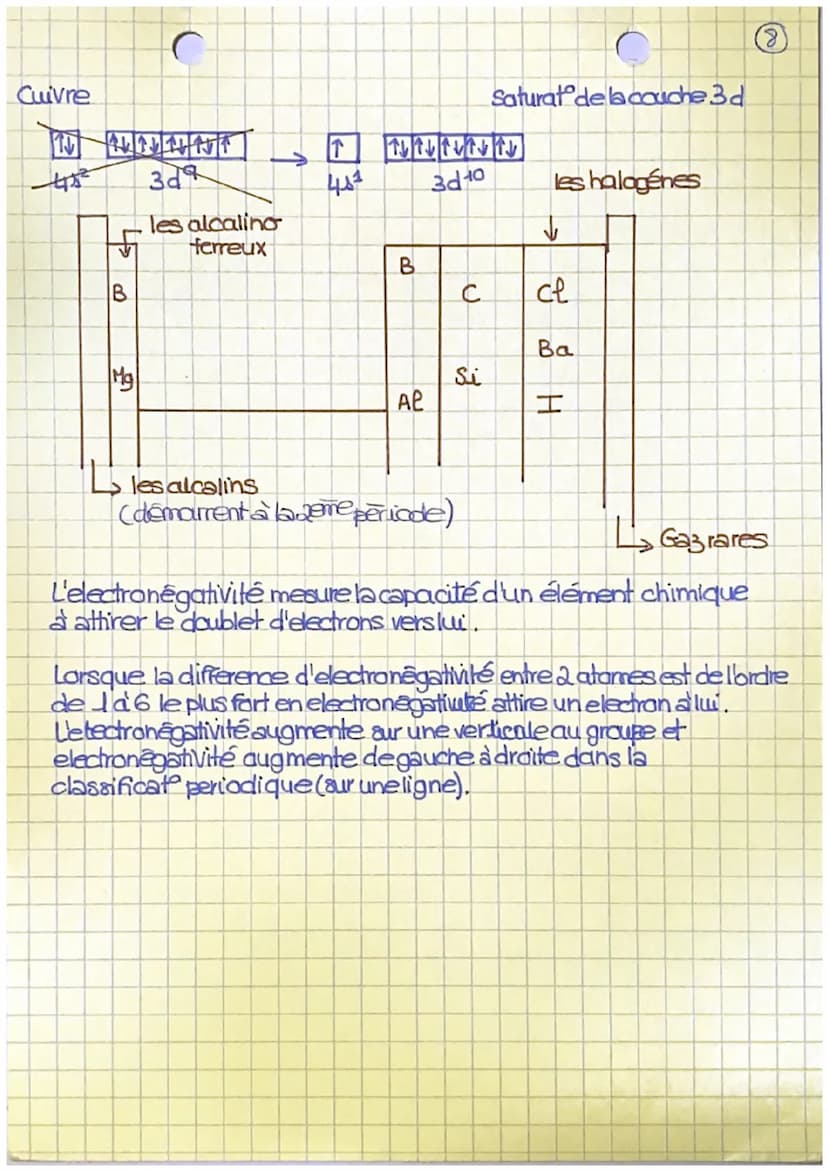 8
Cuivre
Saturat° de la couche 3d
↑↓ ↑↓ ↑↓ ↑↓ ↑↓ ↑ → ↑ ↑↓ ↑↓ ↑↓ ↑↓ ↑↓
4s² 3d⁹ 4s¹ 3d¹⁰
les halogénes
les alcalino
terreux
B
B
C
Cl
Ba
Mg
Si
Al
I
les alcalins
(démarrent à la 2eme période)
Gaz rares
L'electronégativité mesure la capacité d'un élément chimique
à attirer le doublet d'electrons vers lui.
Lorsque la difference d'electronégativité entre 2 atomes est de l'ordre
de 1 à 6 le plus fort en electronegativité attire un electron à lui.
L'electronégativité augmente sur une verticale au groupe et
electronégativité augmente de gauche à droite dans la
classificat° periodique (sur une ligne).